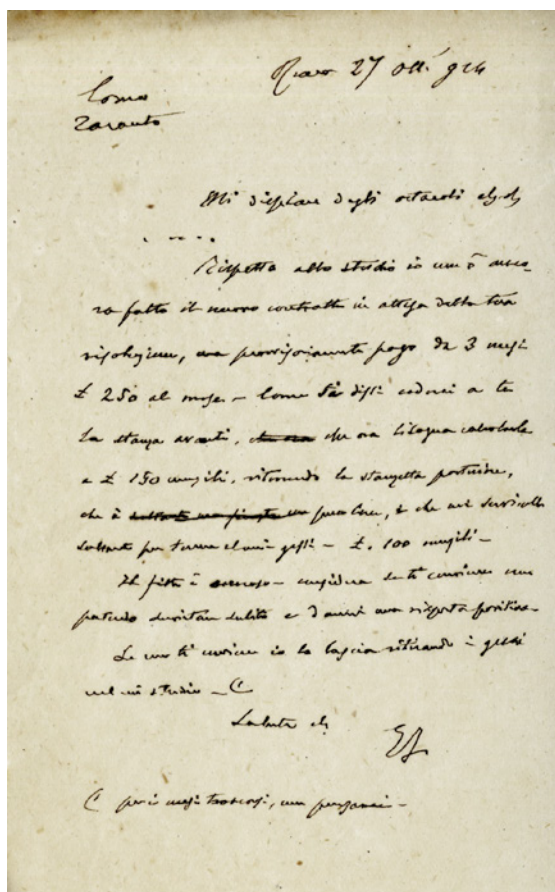 27 Ott. 924
Como
Taranto
Mi dispiace degli ostacoli
. - - .
Rispetto allo studio io non ò anco-
ra fatto il nuovo contratto in attesa della tua
risoluzione, ma provvisoriamente pago da 3 mesi
£ 250 al mese - Come ti dissi cederei a te
la stanza avanti, che ora bisogna calcolarla
a £ 150 mensili, ritenendo la stanzetta posteriore,
che è più buia, e che mi servirebbe
soltanto per tenere alcuni gessi - £. 100 mensili -
Il fitto è oneroso - considera se ti conviene non
potendo venire subito e dammi una risposta positiva -
Se non ti conviene io la lascio ritirando i gessi
nel mio studio - (
Saluti
( per i mesi trascorsi, non pensarci -